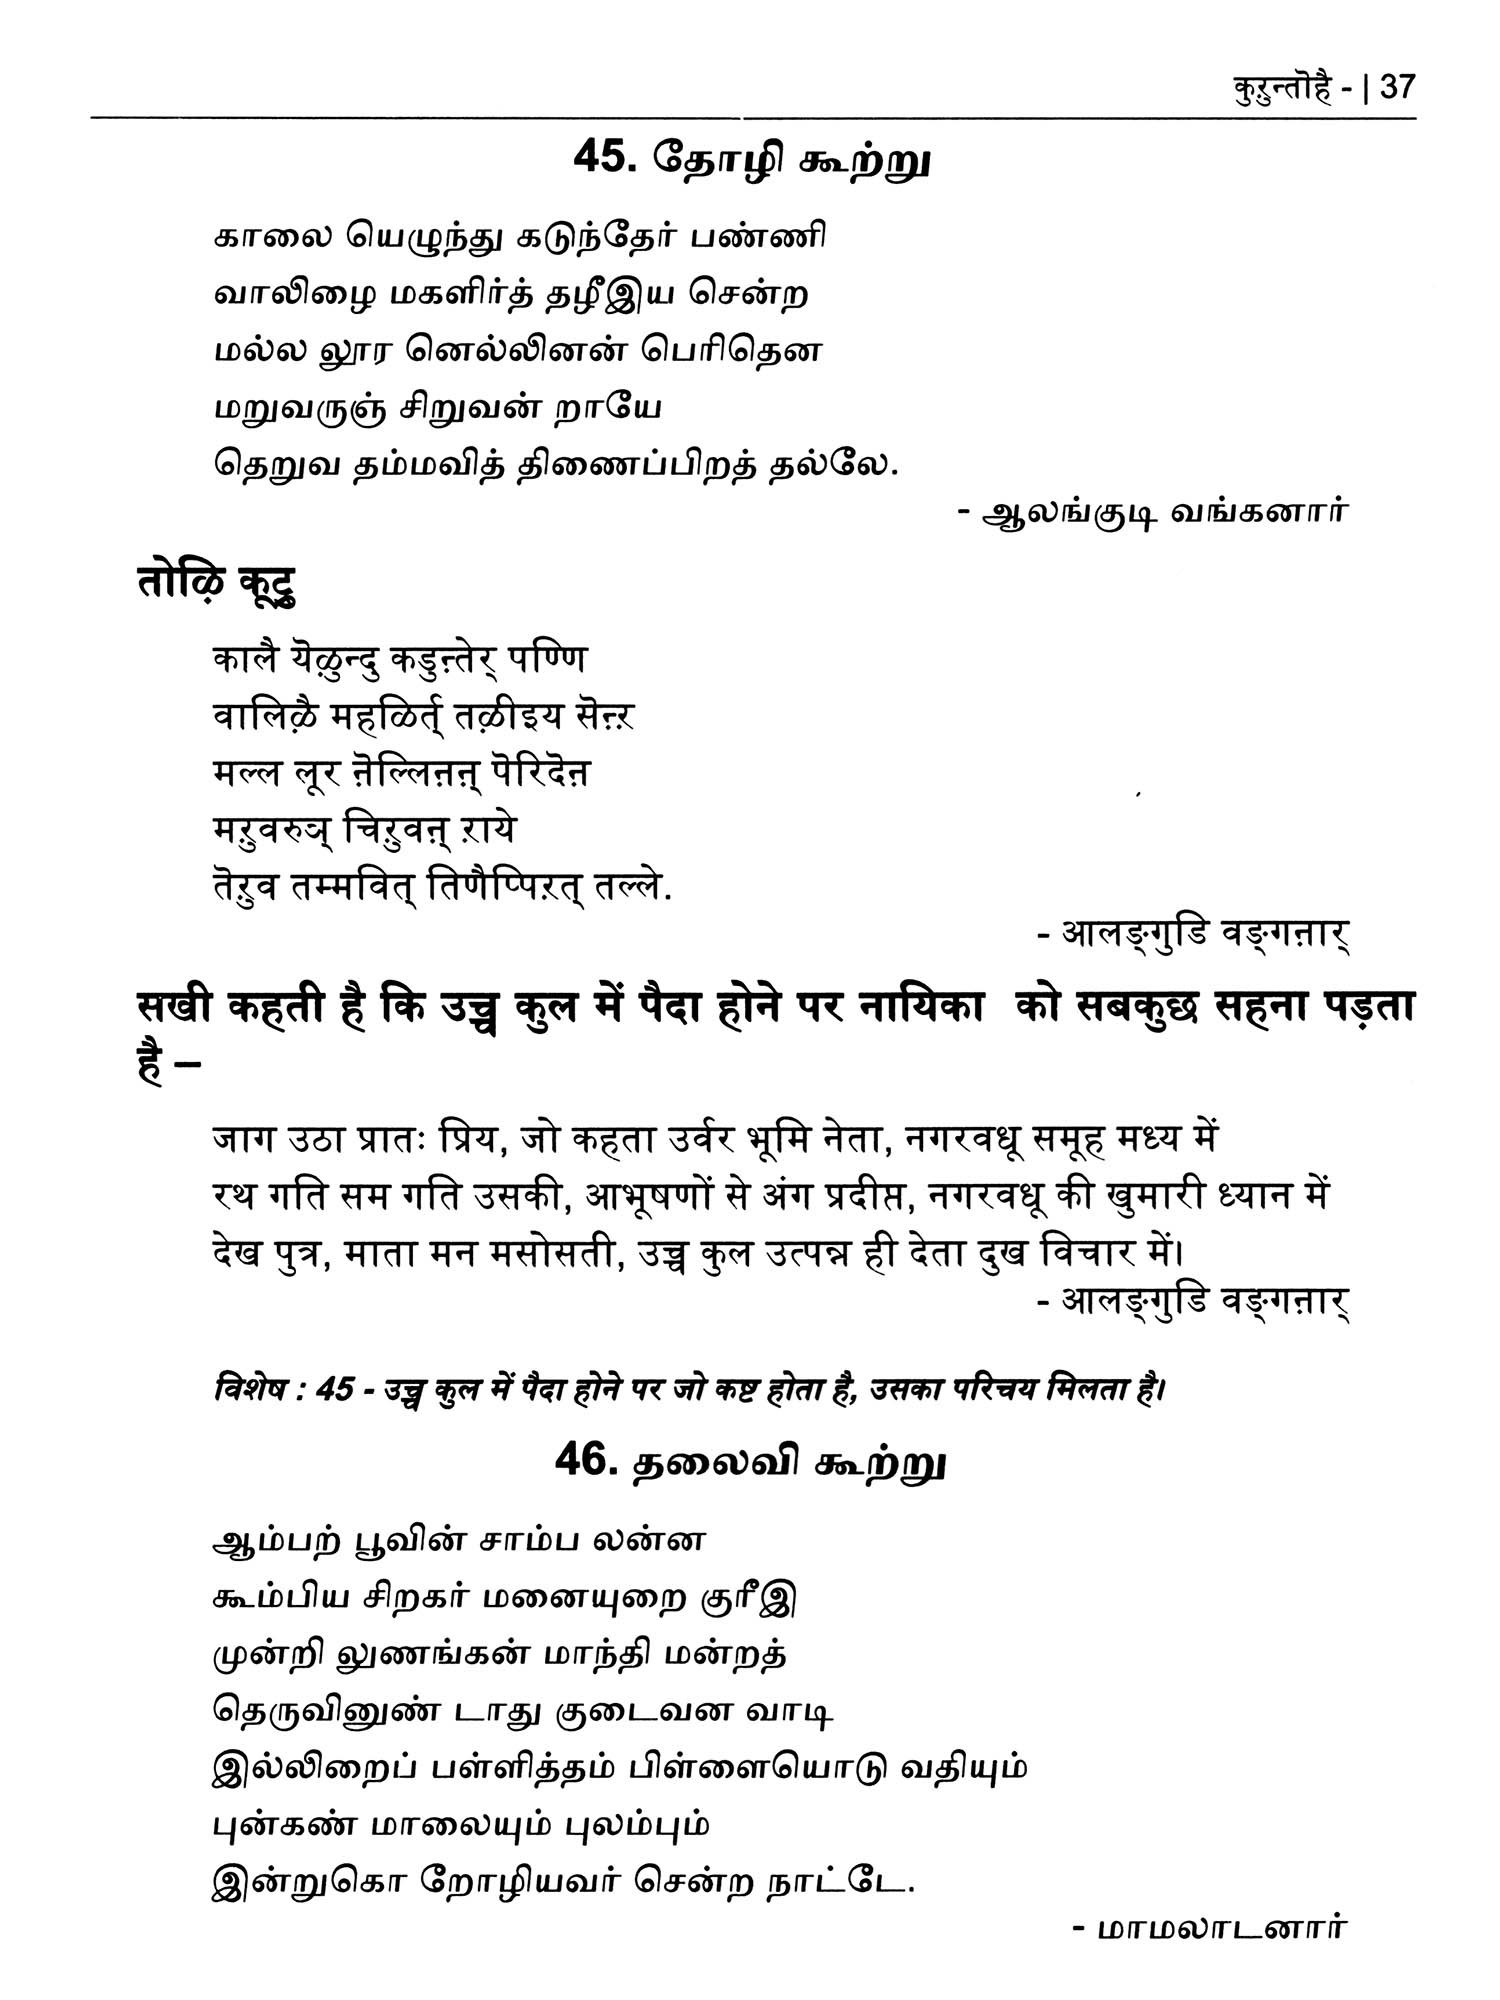 कुऱुन्तॊहै - | 37
45. தோழி கூற்று
காலை யெழுந்து கடுந்தேர் பண்ணி
வாலிழை மகளிர்த் தழீஇய சென்ற
மல்ல லூர னெல்லினன் பெரிதென
மறுவருஞ் சிறுவன் றாயே
தெறுவ தம்மவித் திணைப்பிறத் தல்லே.
- ஆலங்குடி வங்கனார்
तोऴि कूट्रु
कालै यॆऴुन्दु कडुन्तेर् पण्णि
वालिऴै महळिर्त् तऴीइय सॆऩ्ऱ
मल्ल लूर ऩॆल्लिऩऩ् पॆरिदॆऩ
मऱुवरुञ् चिऱुवऩ् ऱाये
तॆऱुव तम्मवित् तिणैप्पिऱत् तल्ले.
- आलङ्गुडि वङ्गऩार्
सखी कहती है कि उच्च कुल में पैदा होने पर नायिका को सबकुछ सहना पड़ता
है –
जाग उठा प्रातः प्रिय, जो कहता उर्वर भूमि नेता, नगरवधू समूह मध्य में
रथ गति सम गति उसकी, आभूषणों से अंग प्रदीप्त, नगरवधू की खुमारी ध्यान में
देख पुत्र, माता मन मसोसती, उच्च कुल उत्पन्न ही देता दुख विचार में।
- आलङ्गुडि वङ्गऩार्
विशेष : 45 - उच्च कुल में पैदा होने पर जो कष्ट होता है, उसका परिचय मिलता है।
46. தலைவி கூற்று
ஆம்பற் பூவின் சாம்ப லன்ன
கூம்பிய சிறகர் மனையுறை குரீஇ
முன்றி லுணங்கன் மாந்தி மன்றத்
தெருவினுண் டாது குடைவன வாடி
இல்லிறைப் பள்ளித்தம் பிள்ளையொடு வதியும்
புன்கண் மாலையும் புலம்பும்
இன்றுகொ றோழியவர் சென்ற நாட்டே.
- மாமலாடனார்